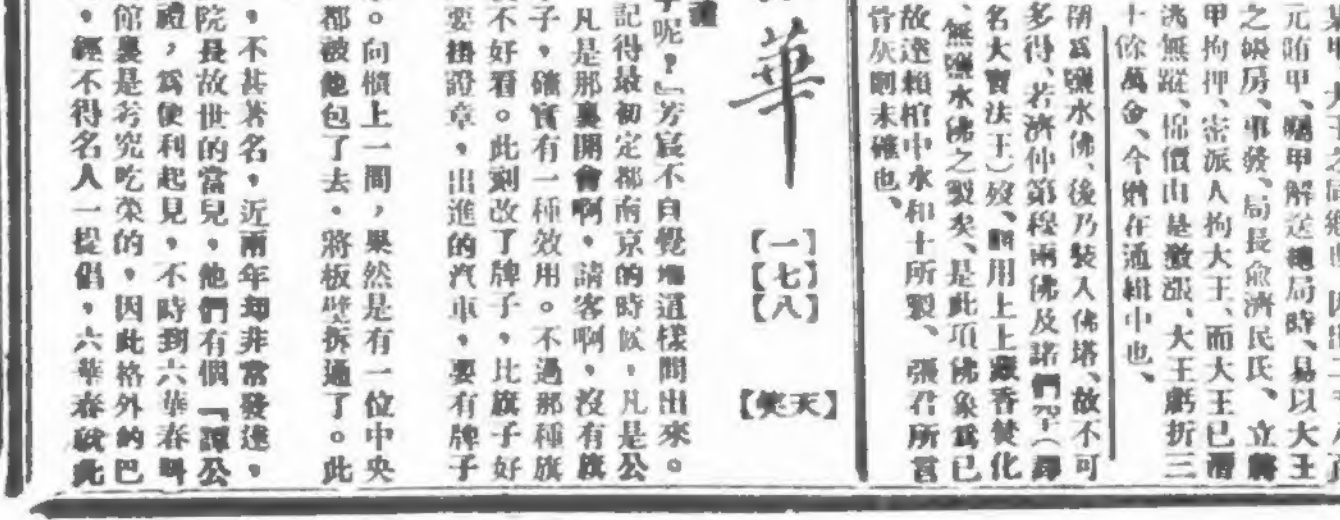 元賄甲、囑甲解送總局時、易以大王
之帳房、事發、局長俞濟民氏、立將
甲拘押、密派人拘大王、而大王已潛
逃無蹤、棉價由是激漲、大王虧折三
十餘萬金、今尙在通緝中也、
稱爲鹽水佛、後乃裝入佛塔、故不可
多得、若濟仲第穆兩佛及諸們罕（譯
名大寶法王）歿、用上上藏香焚化
、無鹽水佛之製矣、是此項佛象爲已
故達賴棺中水和土所製、張君所言
骨灰則未確也、
華
【一】
【七】
【八】
【天笑】
呢？』芳宸不自覺地這樣問出來。
記得最初定都南京的時候，凡是公
凡是那裏開會啊，請客啊，沒有旗
子，確實有一種效用。不過那種旗
不好看。此刻改了牌子，比旗子好
要掛證章，出進的汽車，要有牌子
。向櫃上一問，果然是有一位中央
都被他包了去，將板壁拆通了。此
，不甚著名，近兩年却非常發達，
院長故世的當兒，他們有個「譚公
禮，爲便利起見，不時到六華春
館裏是考究吃菜的，因此格外的巴
，經不得名人一提倡，六華春就此